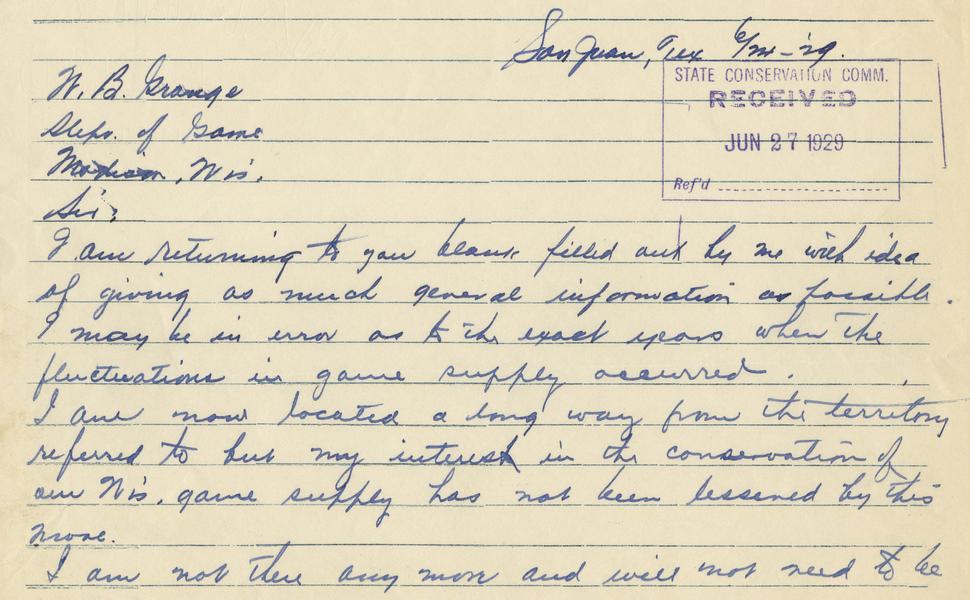 San Juan, Tex 6/24-'29.
STATE CONSERVATION COMM.
RECEIVED
JUN 27 1929
Ref'd
W. B. Grange
Dept. of Game
Madison, Wis.
Sir:
I am returning to you blank filled out by me with idea
of giving as much general information as possible.
I may be in error as to the exact years when the
fluctuations in game supply occurred.
I am now located a long way from the territory
referred to but my interest in the conservation of
our Wis. game supply has not been lessened by this
move.
I am not there any more and will not need to be